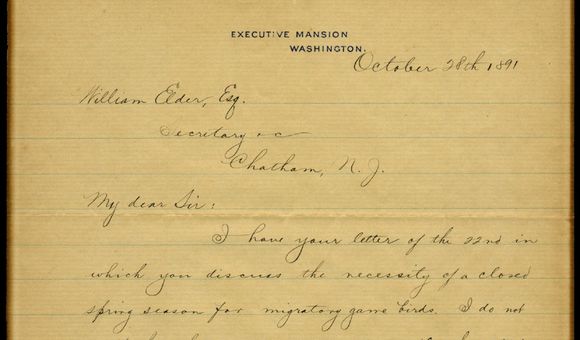 EXECUTIVE MANSION
WASHINGTON.
October 28th 1891
William Elder, Esq.
Secretary &c
Chatham, N. J.
My dear Sir:
I have your letter of the 22nd in
which you discuss the necessity of a closed
spring season for migratory game birds. I do not